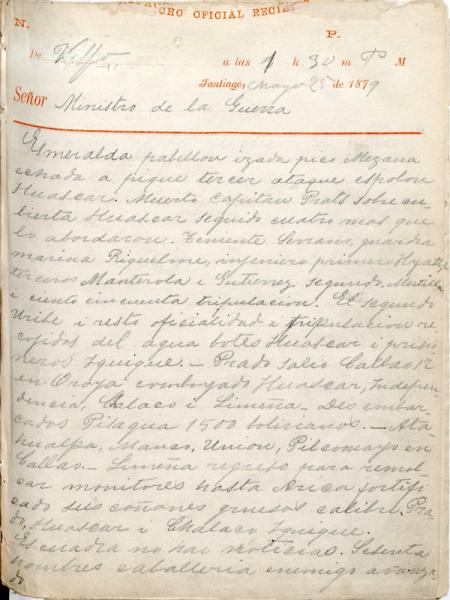 CHO OFICIAL RECIB
N. P.
De Valpo a las 1 h 30 m P M
Santiago, Mayo 25 de 1879
Señor Ministro de la Guerra
Esmeralda pabellon izada pico Mezana
echada a pique tercer ataque espolon
Huascar. Muerto capitan Prats sobre cu-
bierta Huascar seguido cuatro mas que
lo abordaron. Teniente Serrano, guardia
marina Riquelme, injeniero primero Hyatt,
terceros Manterola i Gutierrez segundo, Mutilla
i ciento cincuenta tripulacion. El segundo
Uribe i resto oficialidad i tripulacion re-
cojidos del agua botes Huascar i prisio
neros Iquique. - Prado salio Callao 17
en Oroya comboyado Huascar, Indepen-
dencia, Chalaco i Limeña. Desembar-
cados Pisagua 1500 bolivianos. - Ata-
hualpa, Manco, Union, Pilcomayo en
Callao. - Limeña regreso para remol
car monitores hasta Arica fortifi
cado seis cañones gruesos calibre. Pra-
do, Huascar i Chalaco Iquique.
Escuadra no hai noticias. Sesenta
hombres caballeria enemigo avanza
do